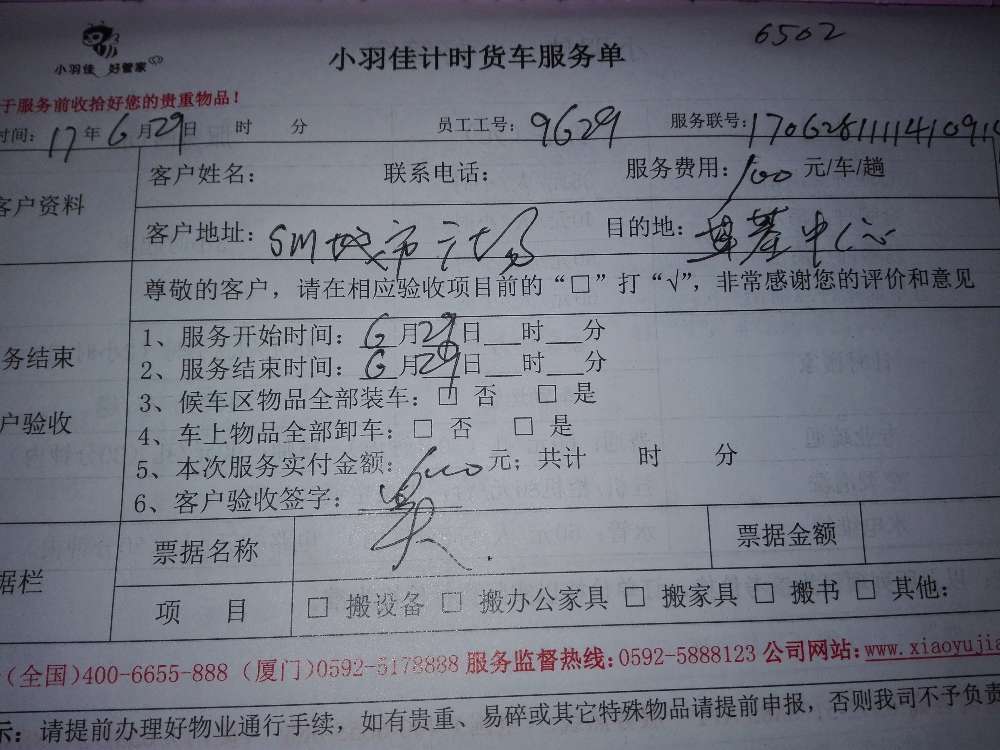 6502
小羽佳 好管家
小羽佳计时货车服务单
于服务前收拾好您的贵重物品！
时间：17年6月29日 时 分 员工工号：9629 服务联号：170628111141091
客户姓名： 联系电话： 服务费用：100元/车/趟
客户资料
客户地址：SM城市广场 目的地：中心
尊敬的客户，请在相应验收项目前的“□”打“√”，非常感谢您的评价和意见
1、服务开始时间：6月29日___时___分
务结束
2、服务结束时间：6月29日___时___分
3、候车区物品全部装车：□ 否 □ 是
户验收
4、车上物品全部卸车：□ 否 □ 是
5、本次服务实付金额：600元；共计 时 分
6、客户验收签字：
票据名称 票据金额
据栏
项 目 □ 搬设备 □ 搬办公家具 □ 搬家具 □ 搬书 □ 其他：
(全国)400-6655-888 (厦门)0592-5178888 服务监督热线：0592-5888123 公司网站：www.xiaoyujia
示：请提前办理好物业通行手续，如有贵重、易碎或其它特殊物品请提前申报，否则我司不予负责